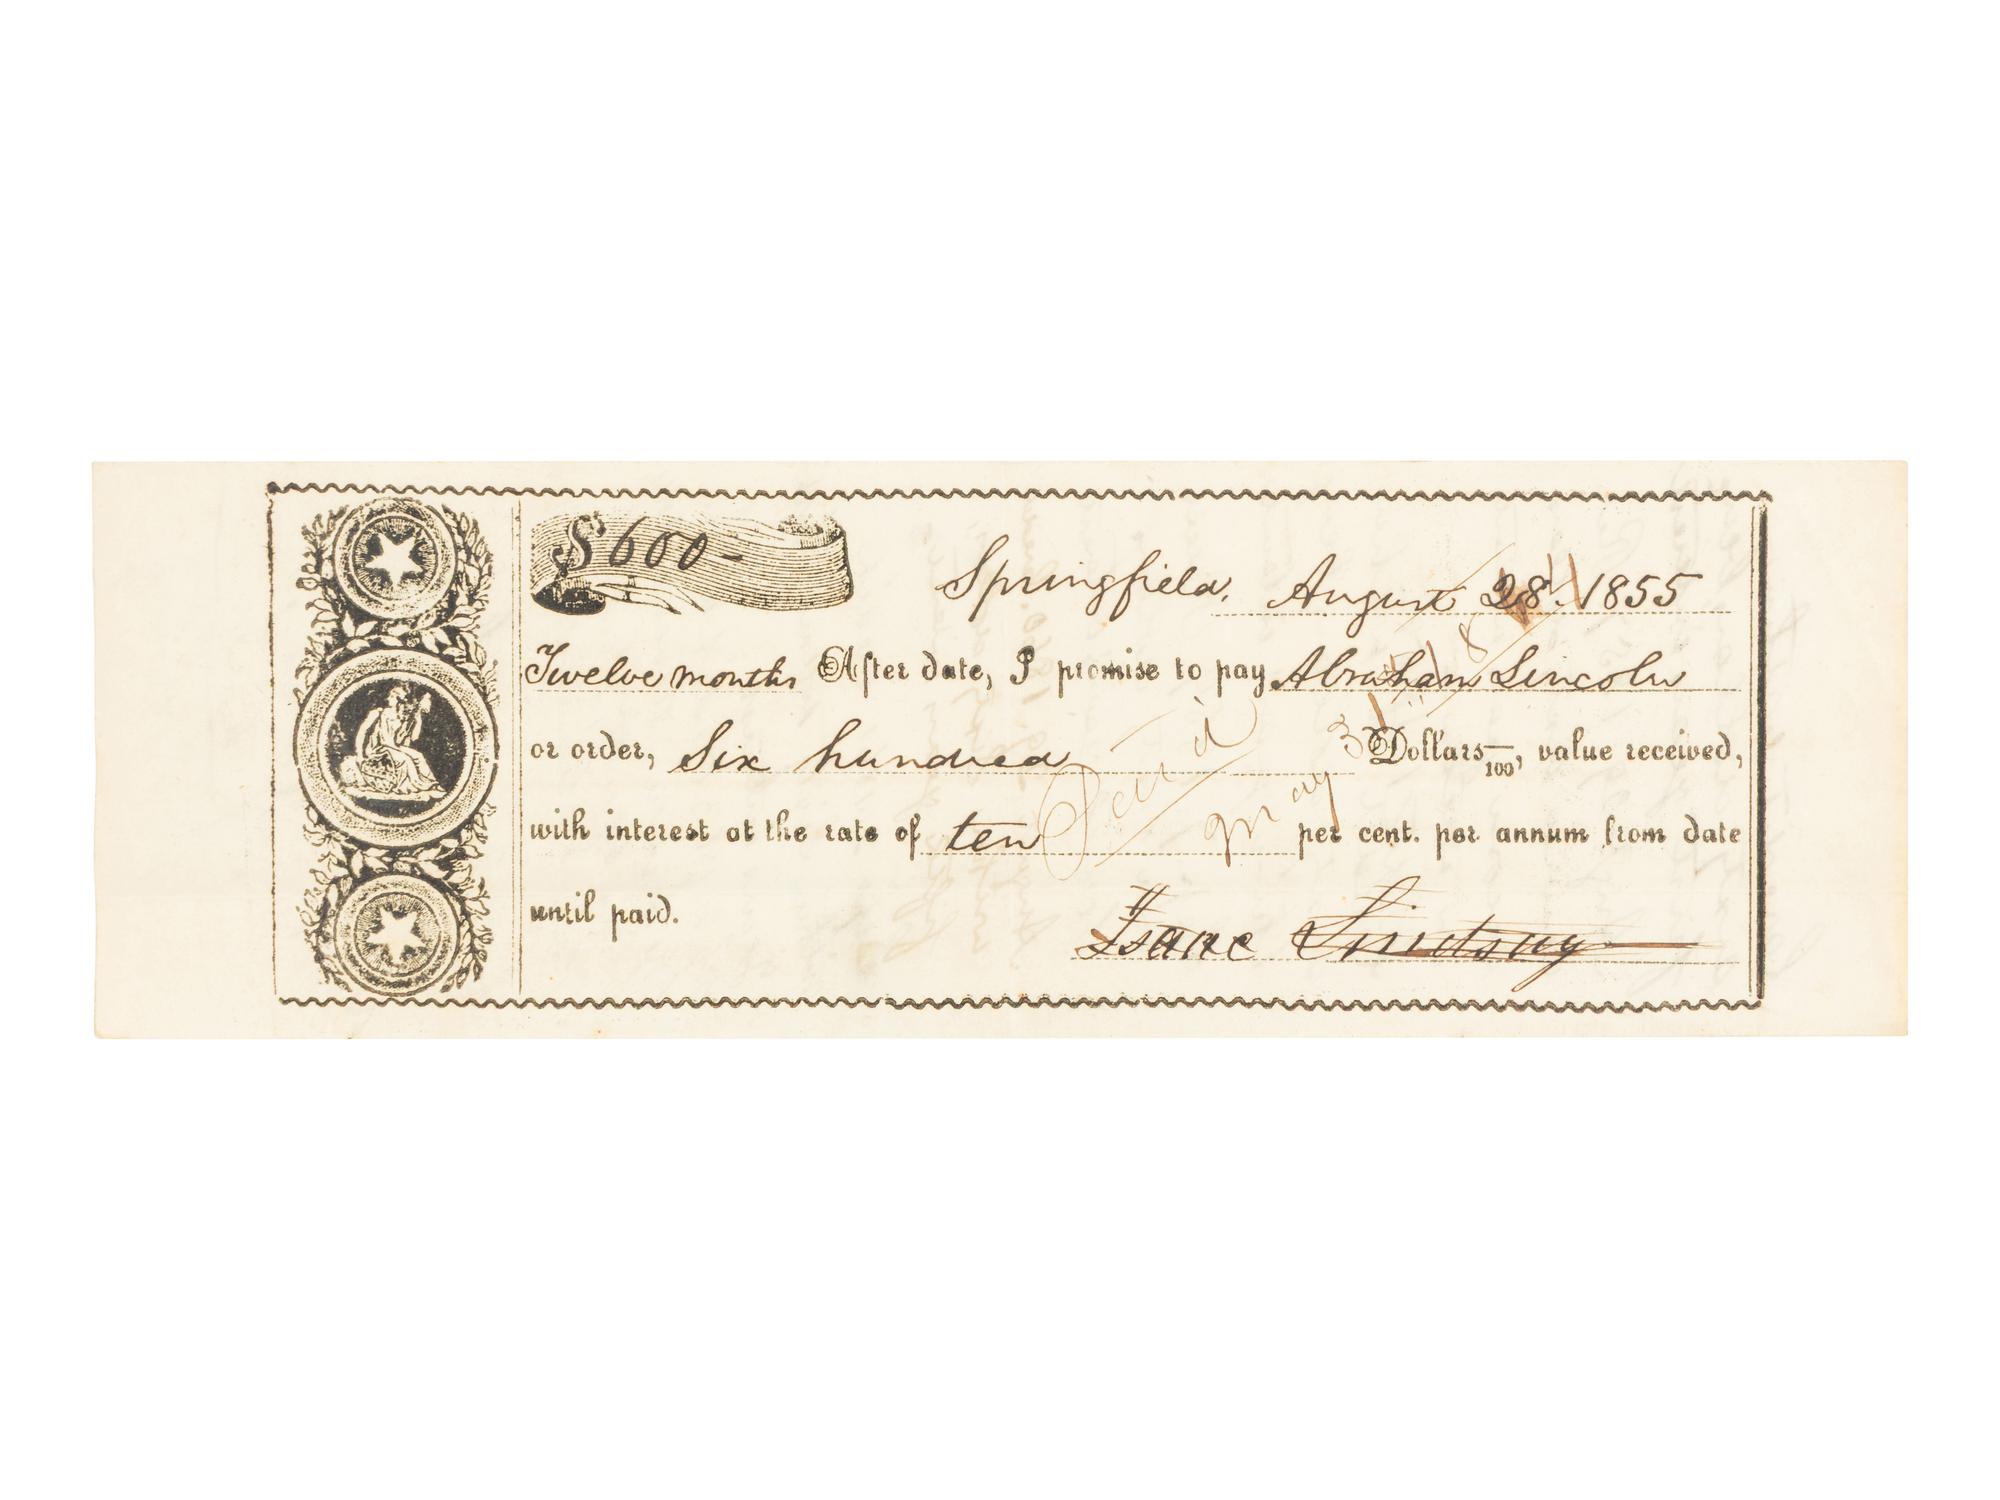 $600-
Springfield, August 28. 1855
Twelve months After date, I promise to pay Abraham Lincoln
or order, Six hundred Dollars —/100, value received,
with interest at the rate of ten per cent. per annum from date
until paid.
Isaac Lindsay
Paid
May 3